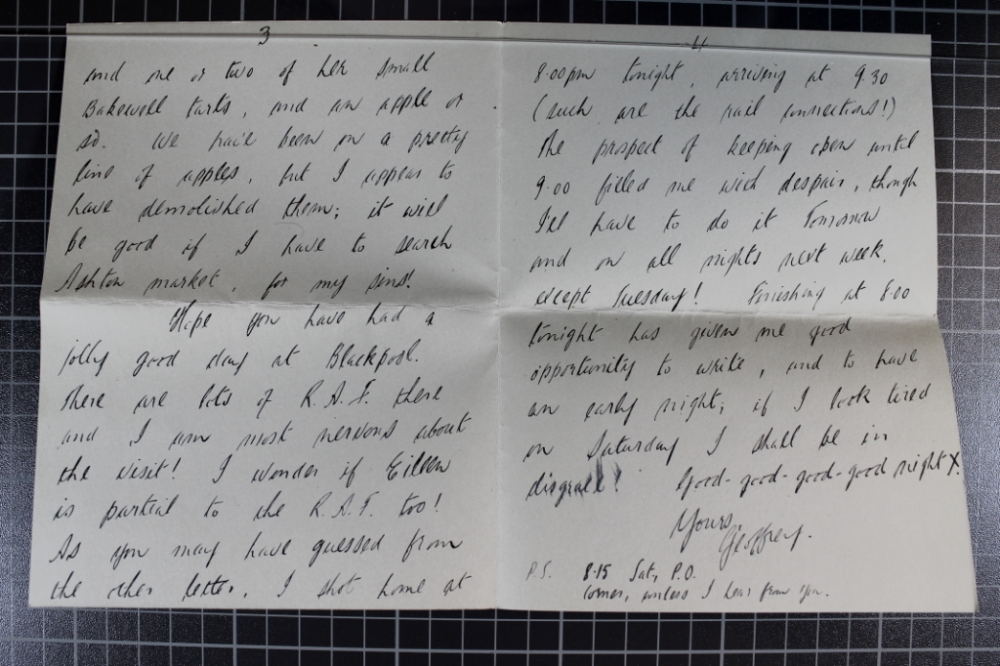 3
and one or two of her small
Bakewell tarts, and an apple or
so. We have been on a pretty
line of apples, but I appear to
have demolished them; it will
be good if I have to search
Ashton market, for my sins!
Hope you have had a
jolly good day at Blackpool.
There are lots of R.A.F. there
and I am most nervous about
the visit! I wonder if Eileen
is partial to the R.A.F. too!
As you may have guessed from
the other letter, I shot home at
4
8.00pm tonight, arriving at 9.30
(such are the rail connections!)
The prospect of keeping open until
9.00 filled me with despair, though
I'll have to do it Tomorrow
and on all nights next week.
except Tuesday! Finishing at 8.00
tonight has given me good
opportunity to write, and to have
an early night; if I look tired
on Saturday I shall be in
disgrace! Good-good-good-good night X.
Yours,
Geoffrey.
P.S. 8.15 Sat, P.O.
Corner, unless I hear from you.